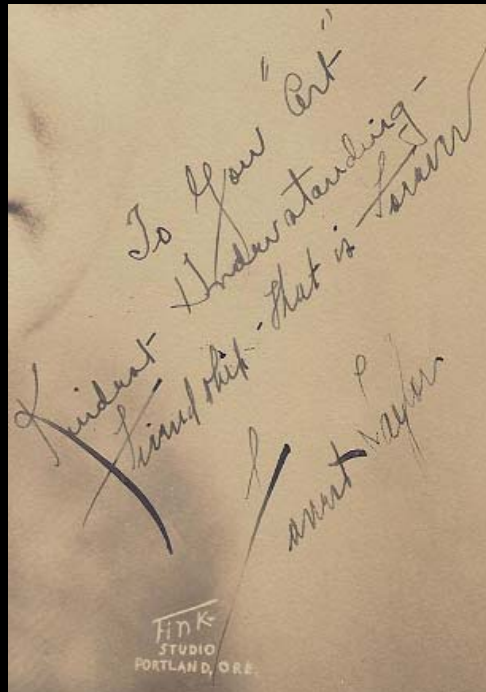 To You "Art"
Kindest Understanding-
Friendship-that is Forever
Forrest Taylor
Fink
STUDIO
PORTLAND, ORE.